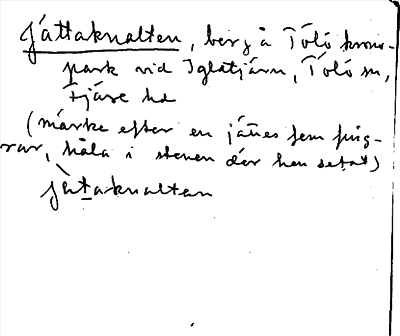 Jättaknalten, berg å Tölö krono-
park vid Iglatjärn, Tölö sn,
Fjäre hd
(märke efter en jättes fem fing-
rar, håla i stenen där han setat)
jàtaknaltan